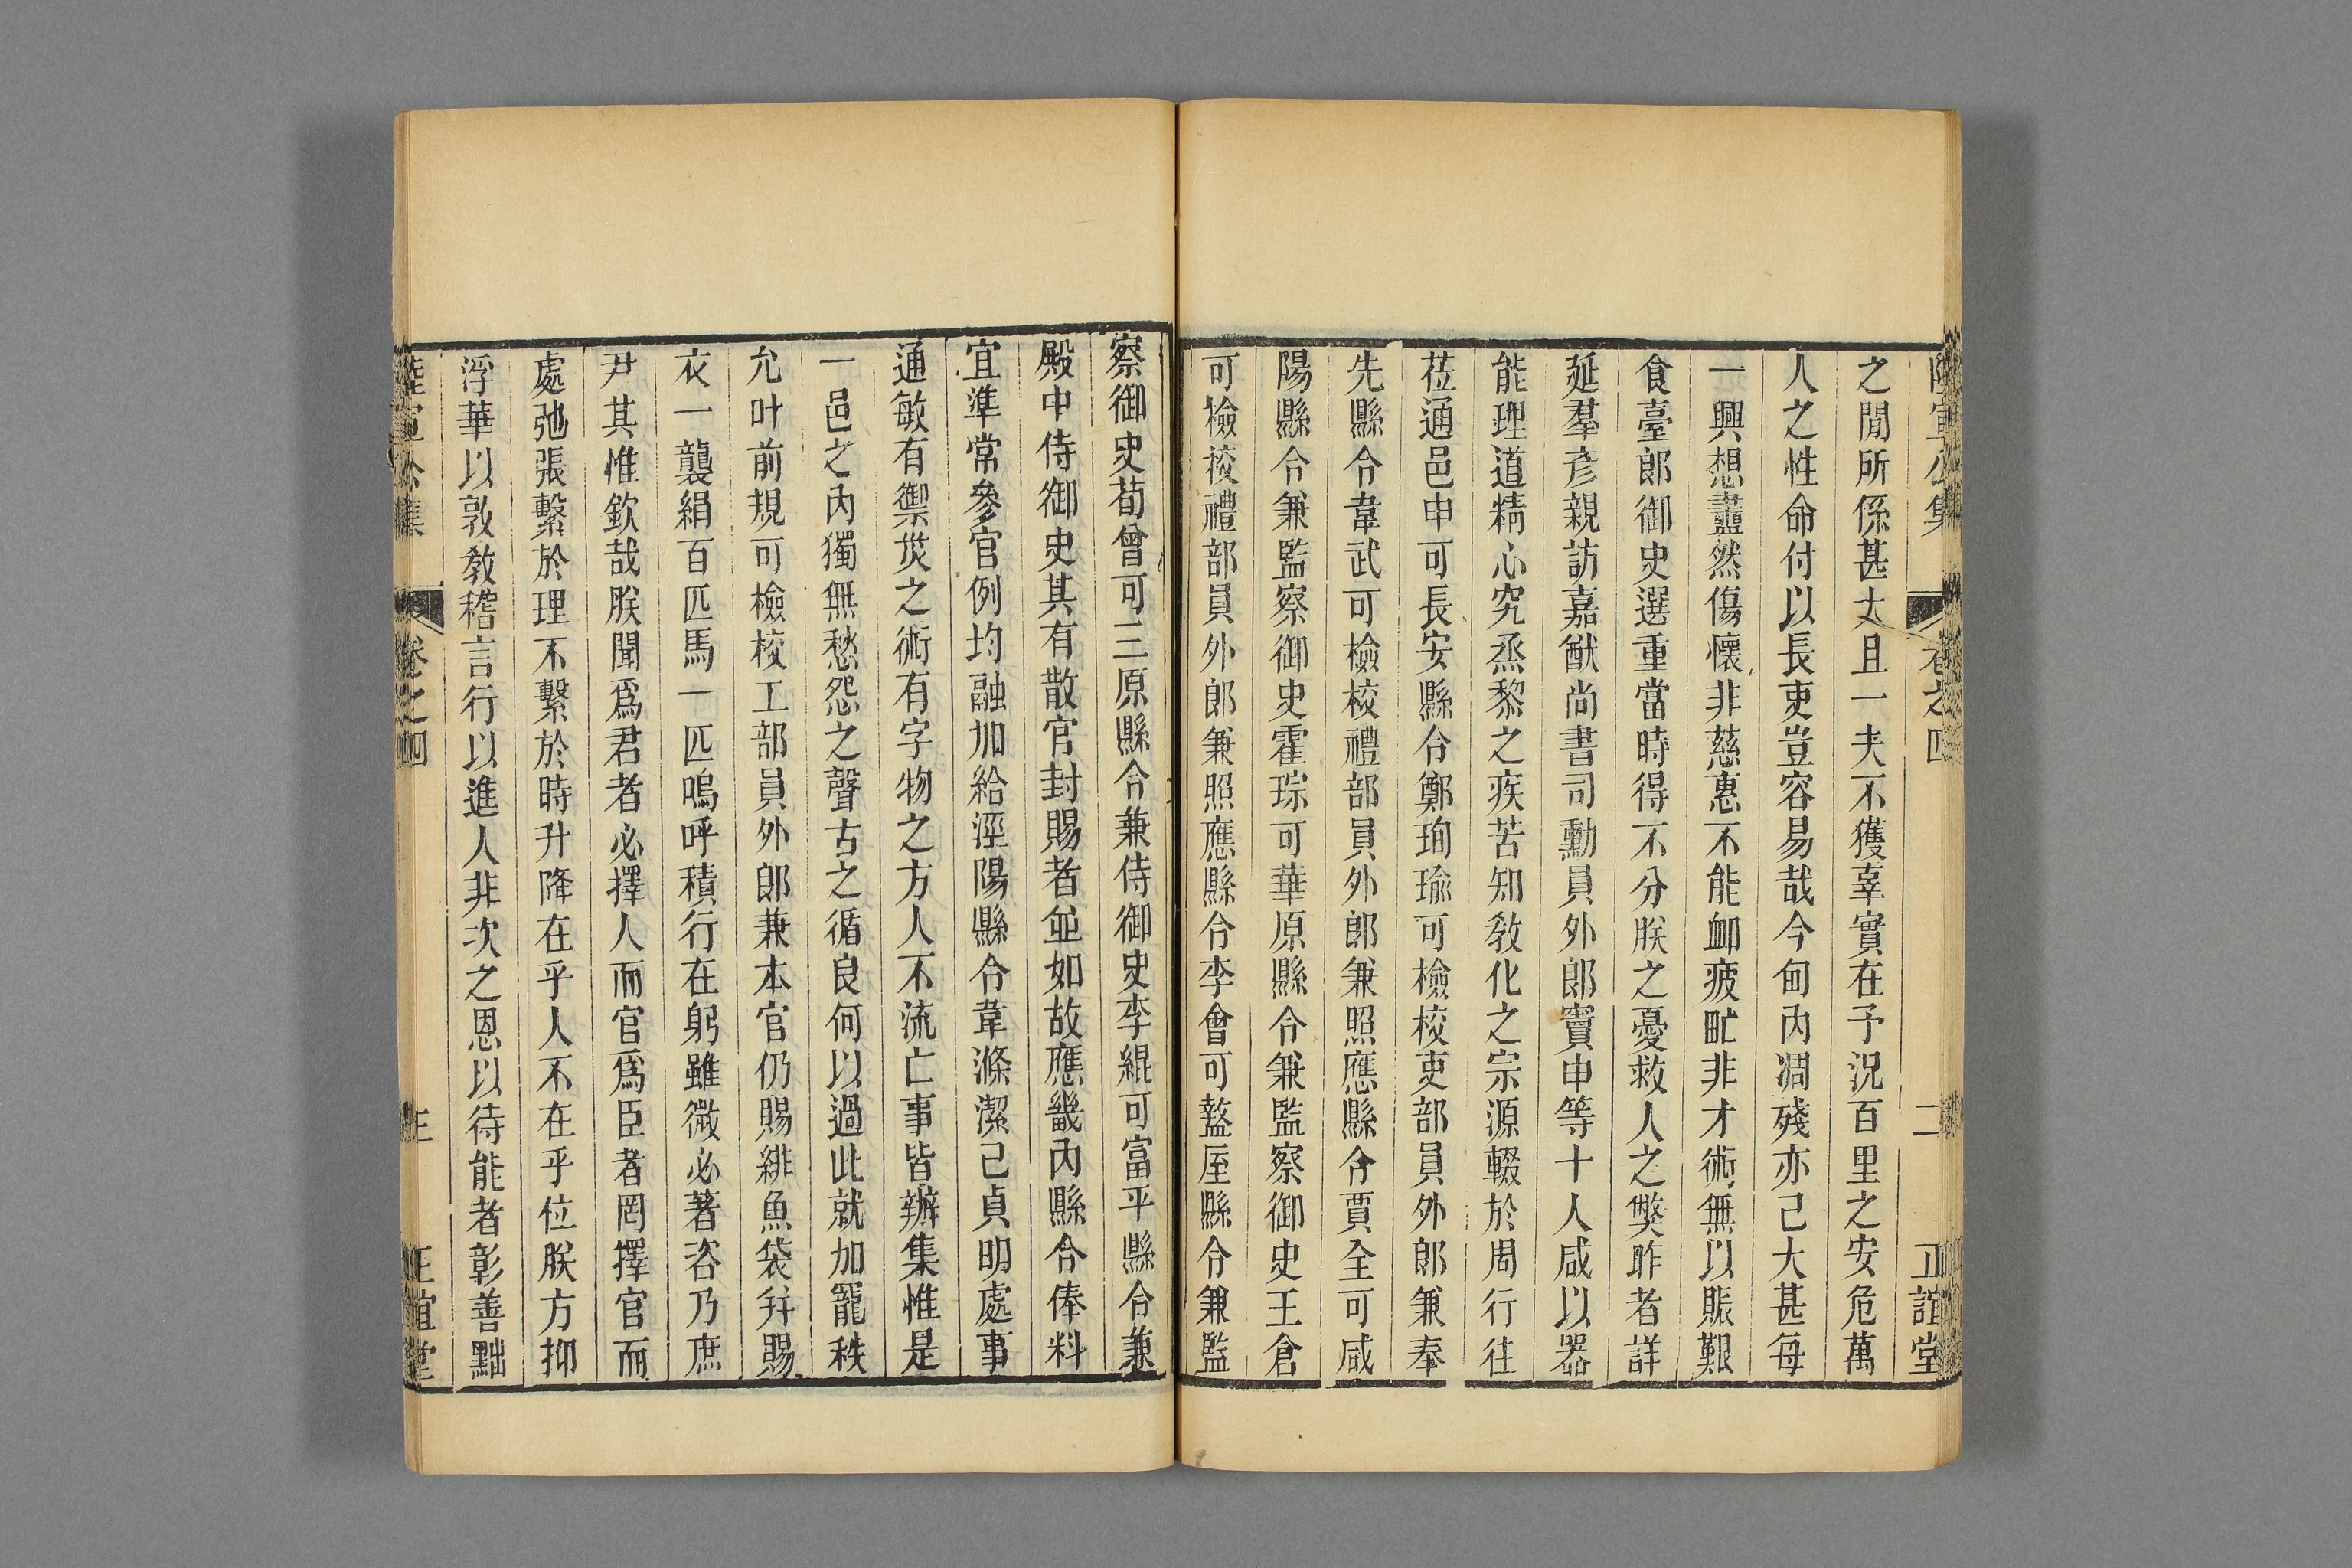 陸宣公集 卷之四 二 正誼堂
之閒所係甚大且一夫不獲辜實在予況百里之安危萬
人之性命付以長吏豈容易哉今甸內凋殘亦已大甚每
一興想盡然傷懷非慈惠不能卹疲甿非才術無以賑艱
食臺郎御史選重當時得不分朕之憂救人之獘昨者詳
延羣彥親訪嘉猷尚書司勳員外郎竇申等十人咸以器
能理道精心究烝黎之疾苦知教化之宗源輟於周行往
莅通邑申可長安縣令鄭珣瑜可檢校吏部員外郎兼奉
先縣令韋武可檢校禮部員外郎兼照應縣令賈全可咸
陽縣令兼監察御史霍琮可華原縣令兼監察御史王倉
可檢校禮部員外郎兼照應縣令李曾可盩厔縣令兼監
察御史荀曾可三原縣令兼侍御史李緄可富平縣令兼
殿中侍御史其有散官封賜者並如故應畿內縣令俸料
宜準常參官例均融加給涇陽縣令韋滌潔己貞明處事
通敏有禦災之術有字物之方人不流亡事皆辦集惟是
一邑之內獨無愁怨之聲古之循良何以過此就加寵秩
允叶前規可檢校工部員外郎兼本官仍賜緋魚袋并賜
衣一襲絹百匹馬一匹嗚呼積行在躬雖微必著咨乃庶
尹其惟欽哉朕聞爲君者必擇人而官爲臣者罔擇官而
處弛張繫於理不繫於時升降在乎人不在乎位朕方抑
浮華以敦教稽言行以進人非次之恩以待能者彰善黜
陸宣公集 卷之四 正誼堂